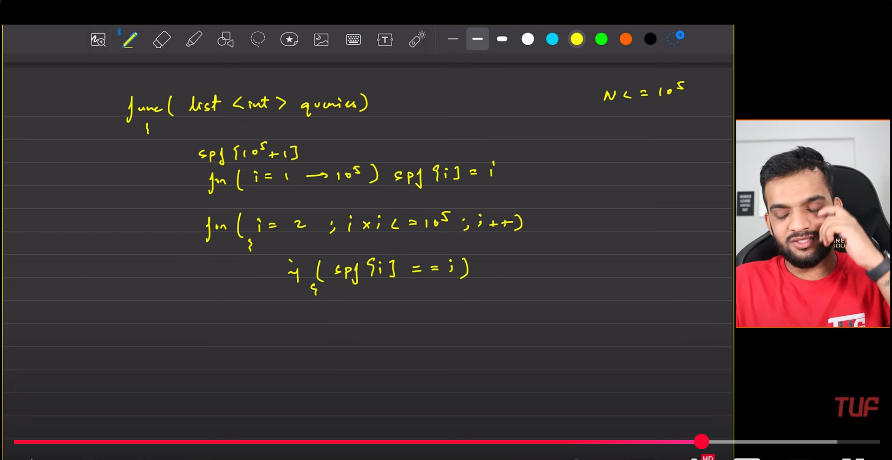 func( list <int> queries)
N <= 10^5
{
spf[10^5+1]
for( i = 1 → 10^5 ) spf[i] = i
for( i = 2 ; i x i <= 10^5 ; i++)
{
if ( spf[i] == i)
{
TUF
HD